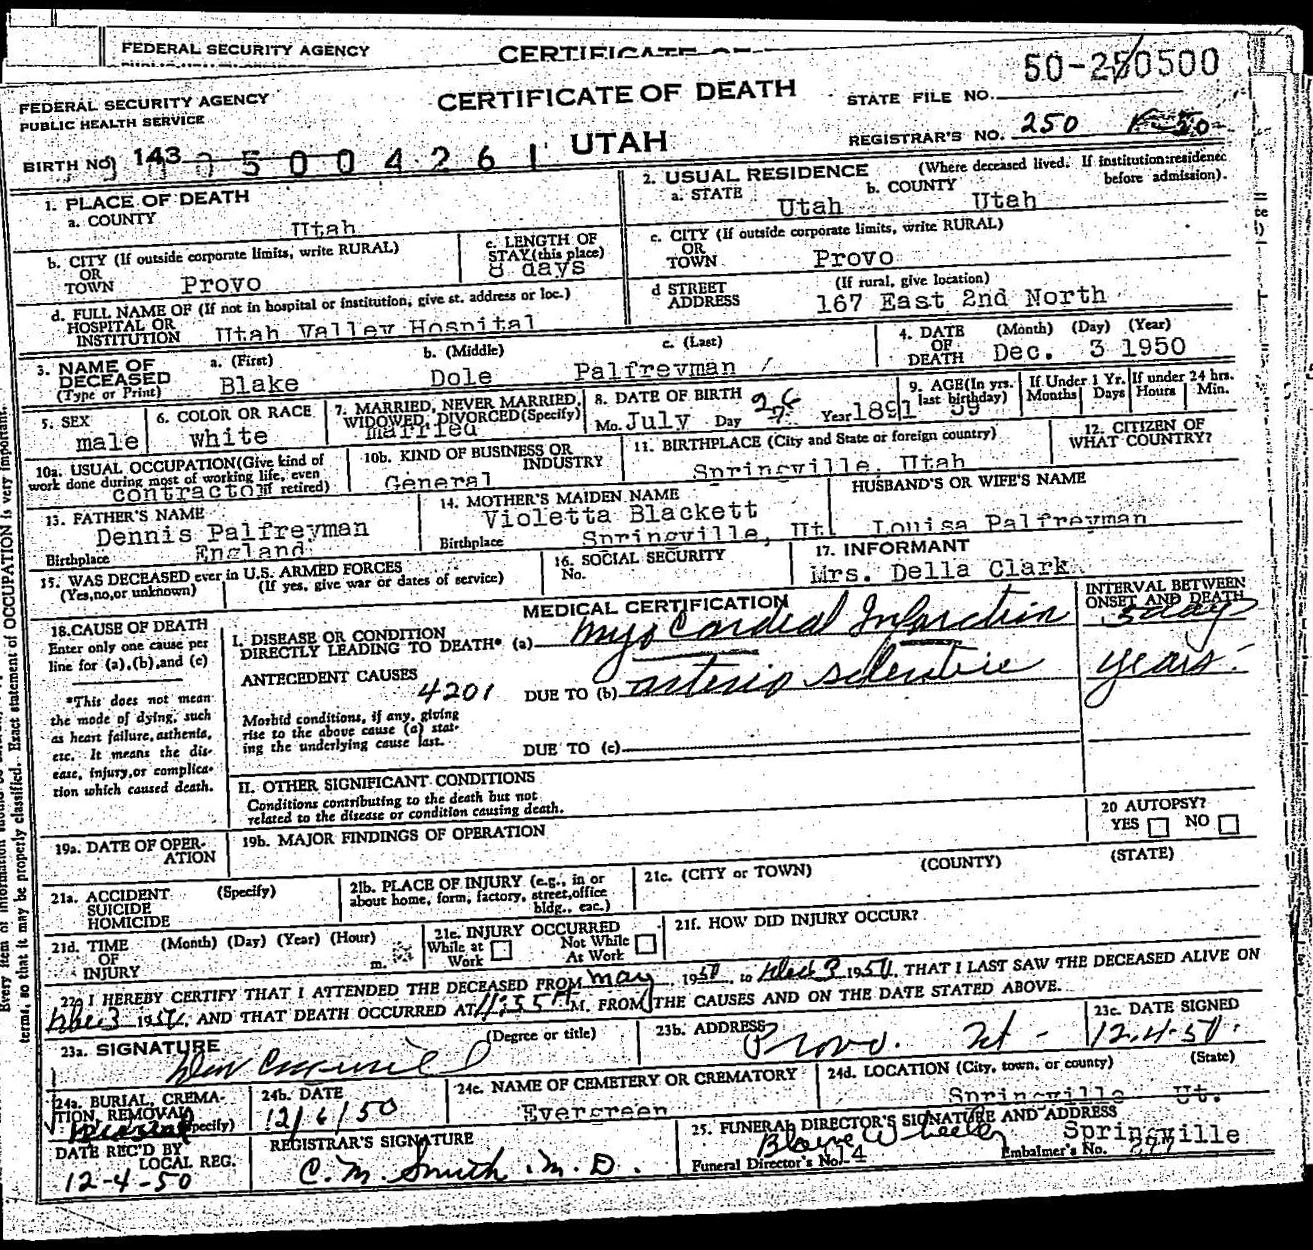 FEDERAL SECURITY AGENCY
CERTIFICATE OF
50-250500
FEDERAL SECURITY AGENCY
PUBLIC HEALTH SERVICE
CERTIFICATE OF DEATH
STATE FILE NO.
UTAH
REGISTRAR'S NO. 250
BIRTH NO. 143
500426
1. PLACE OF DEATH
a. COUNTY
Utah
2. USUAL RESIDENCE (Where deceased lived. If institution: residence before admission).
a. STATE Utah b. COUNTY Utah
b. CITY (If outside corporate limits, write RURAL)
OR
TOWN Provo
c. LENGTH OF
STAY (this place)
8 days
c. CITY (If outside corporate limits, write RURAL)
OR
TOWN Provo
d. FULL NAME OF (If not in hospital or institution, give st. address or loc.)
HOSPITAL OR
INSTITUTION Utah Valley Hospital
d STREET (If rural, give location)
ADDRESS 167 East 2nd North
3. NAME OF
DECEASED
(Type or Print)
a. (First) Blake
b. (Middle) Dole
c. (Last) Palfreyman
4. DATE
OF
DEATH
(Month) (Day) (Year)
Dec. 3 1950
5. SEX
male
6. COLOR OR RACE
white
7. MARRIED, NEVER MARRIED,
WIDOWED, DIVORCED (Specify)
married
8. DATE OF BIRTH
Mo. July Day 26 Year 1891
9. AGE (In yrs.
last birthday)
59
If Under 1 Yr.
Months Days
If under 24 hrs.
Hours Min.
10a. USUAL OCCUPATION (Give kind of
work done during most of working life, even
if retired)
contractor
10b. KIND OF BUSINESS OR
INDUSTRY
General
11. BIRTHPLACE (City and State or foreign country)
Springville, Utah
12. CITIZEN OF
WHAT COUNTRY?
13. FATHER'S NAME
Dennis Palfreyman
Birthplace England
14. MOTHER'S MAIDEN NAME
Violetta Blackett
Birthplace Springville, Ut.
HUSBAND'S OR WIFE'S NAME
Louisa Palfreyman
15. WAS DECEASED ever in U.S. ARMED FORCES
(Yes, no, or unknown) (If yes, give war or dates of service)
16. SOCIAL SECURITY
No.
17. INFORMANT
Mrs. Della Clark
18. CAUSE OF DEATH
Enter only one cause per
line for (a), (b), and (c)
*This does not mean
the mode of dying, such
as heart failure, asthenia,
etc. It means the dis-
ease, injury, or complica-
tion which caused death.
MEDICAL CERTIFICATION
INTERVAL BETWEEN
ONSET AND DEATH
I. DISEASE OR CONDITION
DIRECTLY LEADING TO DEATH* (a) Myocardial Infarction
days
ANTECEDENT CAUSES
4201 DUE TO (b) arterio sclerotic years.
Morbid conditions, if any, giving
rise to the above cause (a) stat-
ing the underlying cause last.
DUE TO (c)
II. OTHER SIGNIFICANT CONDITIONS
Conditions contributing to the death but not
related to the disease or condition causing death.
19a. DATE OF OPER-
ATION
19b. MAJOR FINDINGS OF OPERATION
20 AUTOPSY?
YES NO
21a. ACCIDENT (Specify)
SUICIDE
HOMICIDE
21b. PLACE OF INJURY (e.g., in or
about home, form, factory, street, office
bldg., eac.)
21c. (CITY or TOWN) (COUNTY) (STATE)
21d. TIME (Month) (Day) (Year) (Hour)
OF
INJURY m.
21e. INJURY OCCURRED
While at
Work
Not While
At Work
21f. HOW DID INJURY OCCUR?
22. I HEREBY CERTIFY THAT I ATTENDED THE DECEASED FROM May, 1950, to Dec 3 1950, THAT I LAST SAW THE DECEASED ALIVE ON
Dec 3 1950, AND THAT DEATH OCCURRED AT M. FROM THE CAUSES AND ON THE DATE STATED ABOVE.
23a. SIGNATURE (Degree or title)
23b. ADDRESS
Provo. Ut -
23c. DATE SIGNED
12-4-50.
24a. BURIAL, CREMA-
TION, REMOVAL
(Specify)
24b. DATE
12/6/50
24c. NAME OF CEMETERY OR CREMATORY
Evergreen
24d. LOCATION (City, town, or county) (State)
Springville Ut.
DATE REC'D BY
LOCAL REG.
12-4-50
REGISTRAR'S SIGNATURE
C. M. Smith M.D.
25. FUNERAL DIRECTOR'S SIGNATURE AND ADDRESS
Blaine Wheeler Springville
Funeral Director's No. 14 Embalmer's No. 277
Every item of information should be
terms, so that it may be properly classified. Exact statement of OCCUPATION is very important.